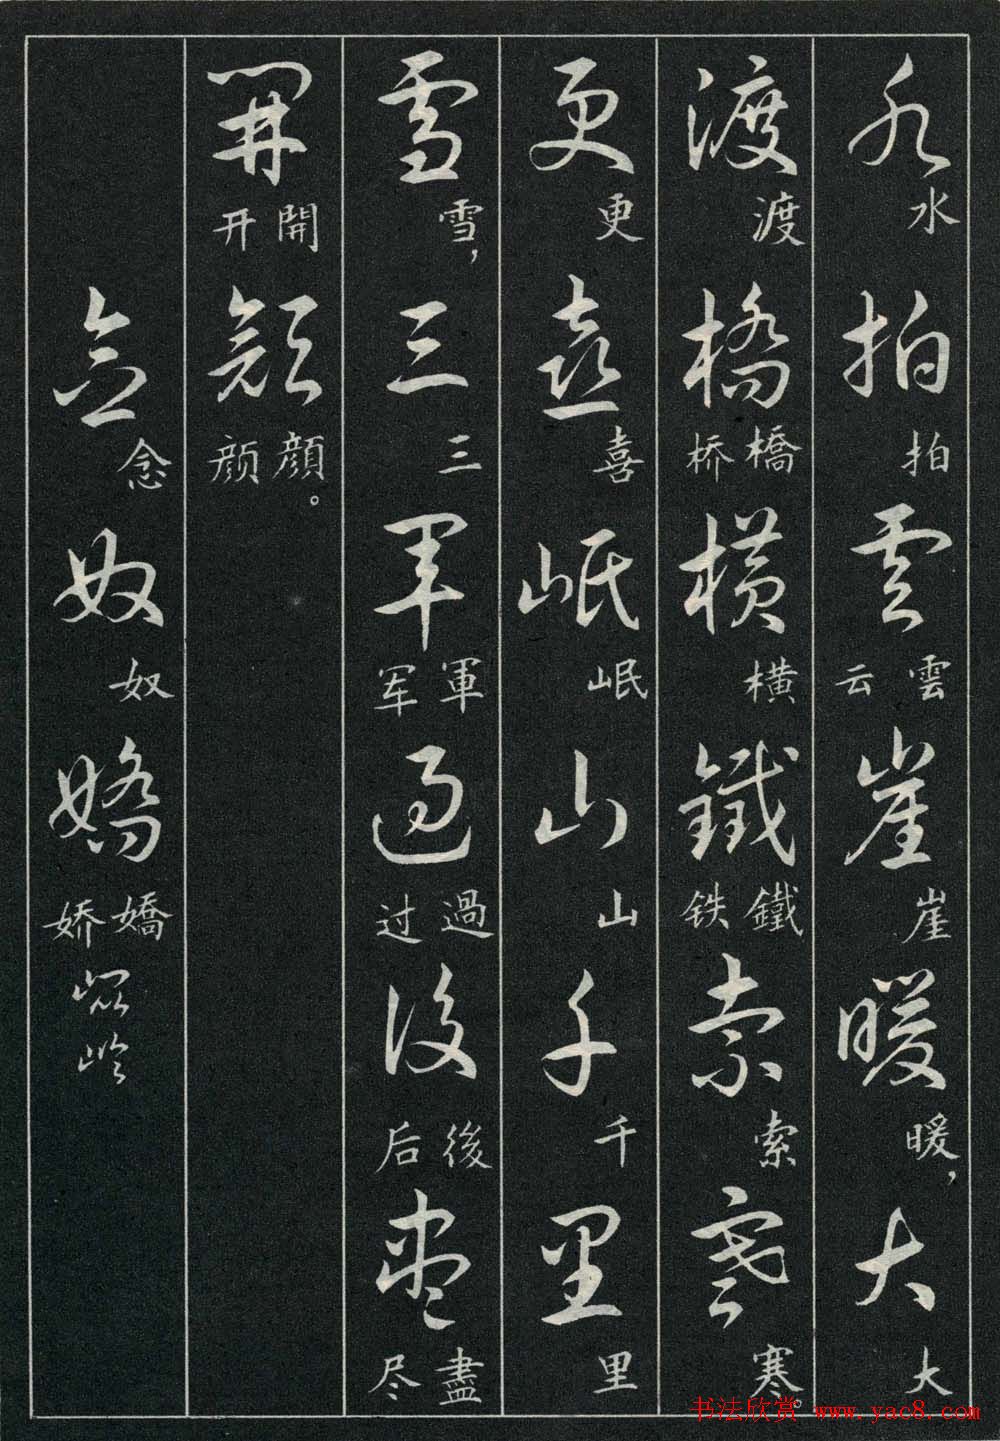 水 水 拍 拍 雲 雲 云 崖 崖 暖 暖， 大 大
渡 渡 橋 橋 桥 橫 横 鐵 鐵 铁 索 索 寒 寒。
更 更 喜 喜 岷 岷 山 山 千 千 里 里
雪 雪， 三 三 軍 軍 军 過 過 过 後 後 后 盡 盡 尽
開 開 开 顏 顔 颜。
念 念 奴 奴 嬌 嬌 娇 崐崘
书法欣赏 www.yac8.com